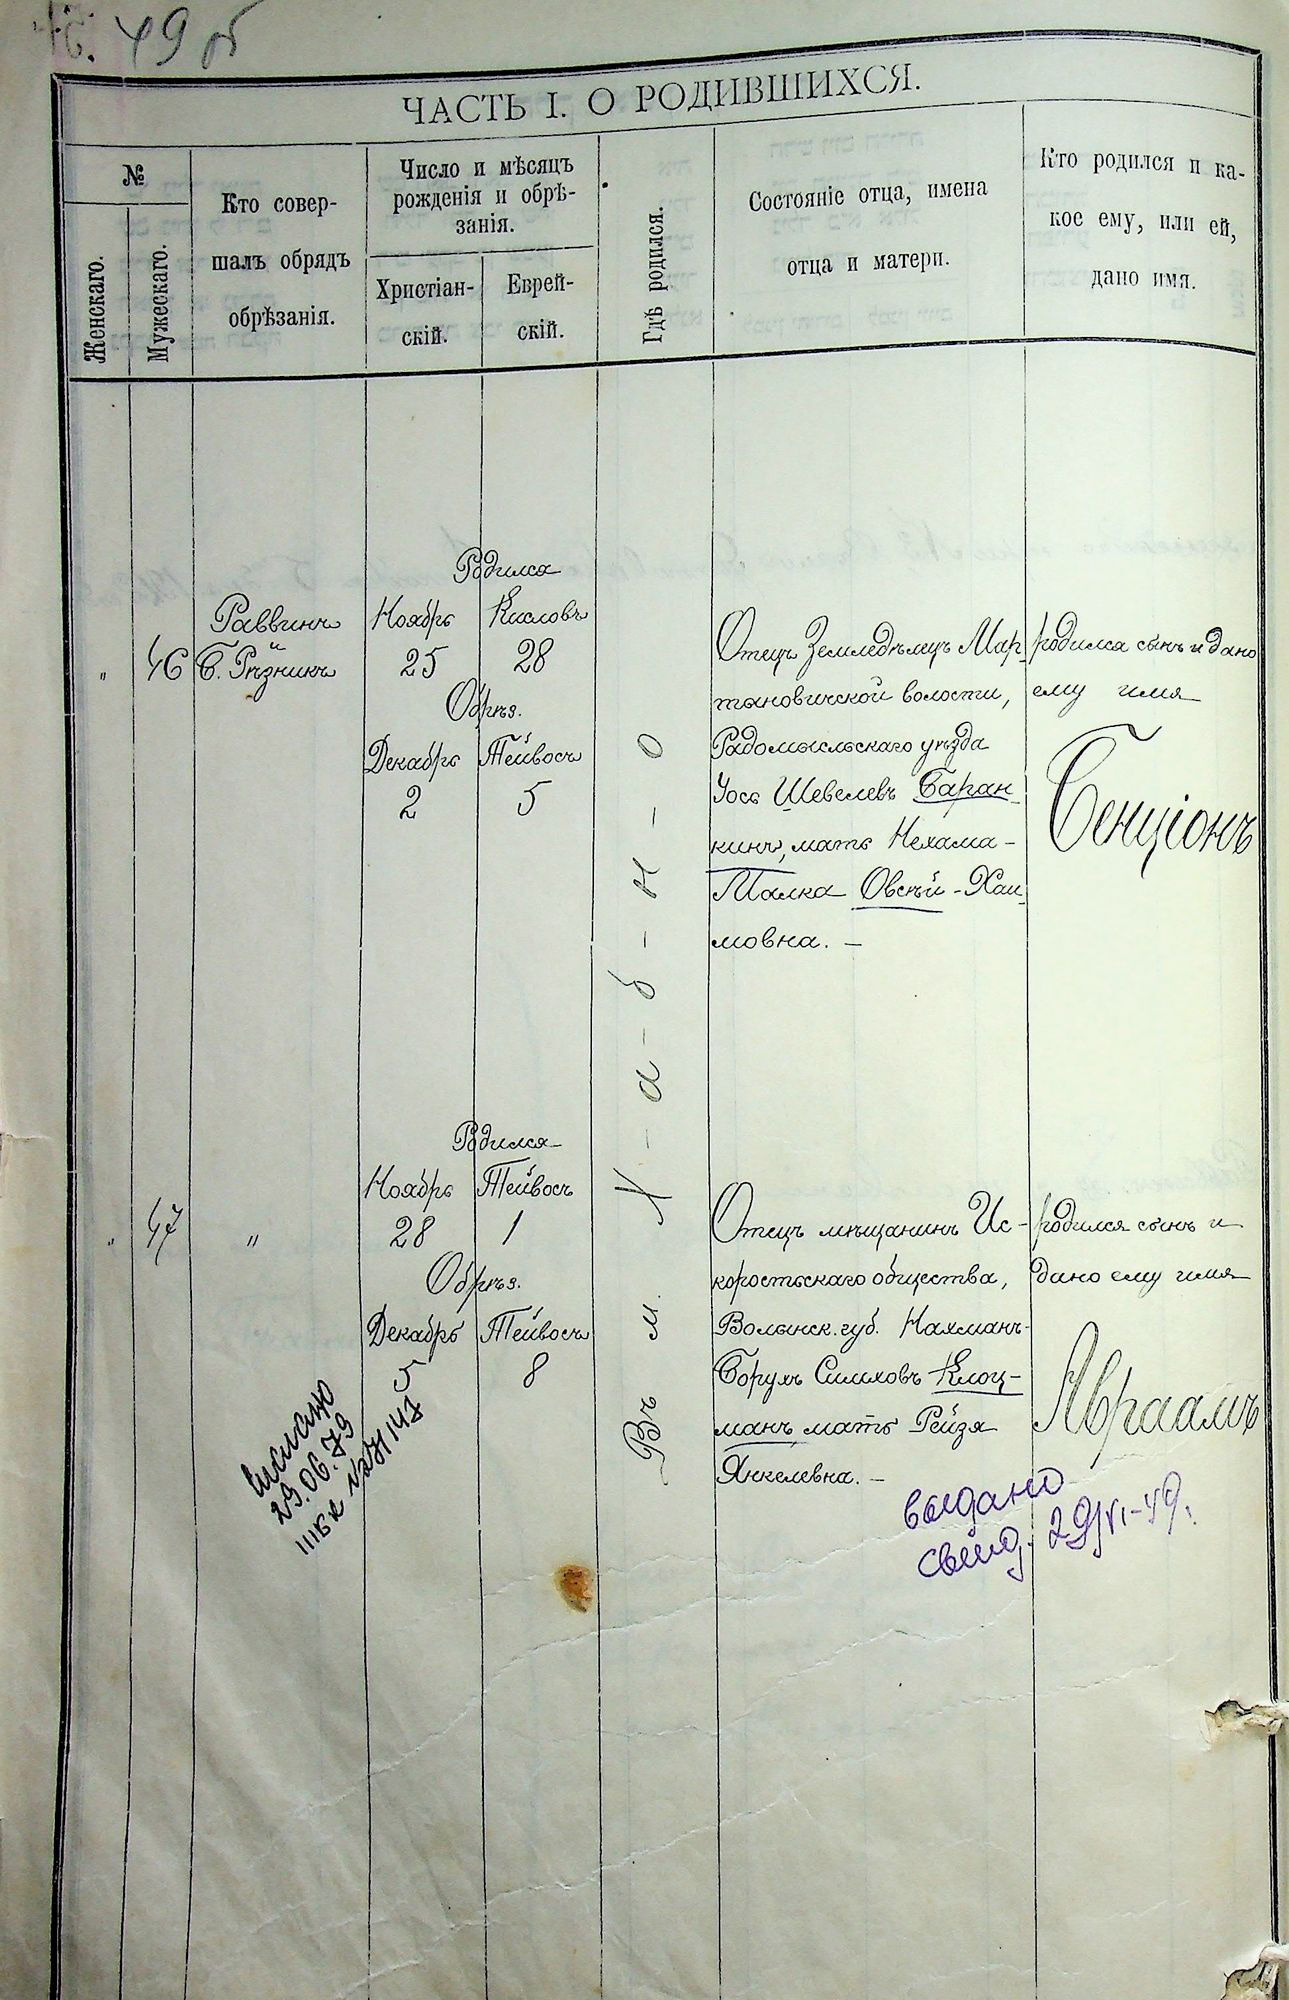 49 об
ЧАСТЬ I. О РОДИВШИХСЯ.
№
Женскаго.
Мужескаго.
Кто совер-
шалъ обрядъ
обрѣзанія.
Число и мѣсяцъ
рожденія и обрѣ-
занія.
Христіан-
скій.
Еврей-
скій.
Гдѣ родился.
Состояніе отца, имена
отца и матери.
Кто родился и ка-
кое ему, или ей,
дано имя.
Въ м. Х-а-б-н-о
„ 46
Раввинъ
Б. Рѣзникъ
Родился
Ноябрь Кисловъ
25 28
Обрѣз.
Декабрь Тейвосъ
2 5
Отецъ Земледѣлецъ Мар-
тыновичской волости,
Радомысльскаго уѣзда
Іось Шевелевъ Баран-
кинъ, мать Нехама-
Малка Овсѣй-Хаи-
мовна. –
родился сынъ и дано
ему имя
Бенціонъ
„ 47 „
Родился
Ноябрь Тейвосъ
28 1
Обрѣз.
Декабрь Тейвосъ
5 8
Отецъ мѣщанинъ Ис-
коростьскаго общества,
Волынск. губ. Нахманъ-
Борухъ Симховъ Клоц-
манъ, мать Рейзя
Янкелевна. –
родился сынъ и
дано ему имя
Авраамъ
29.06.79
выдано
свид. 29/VI-49.